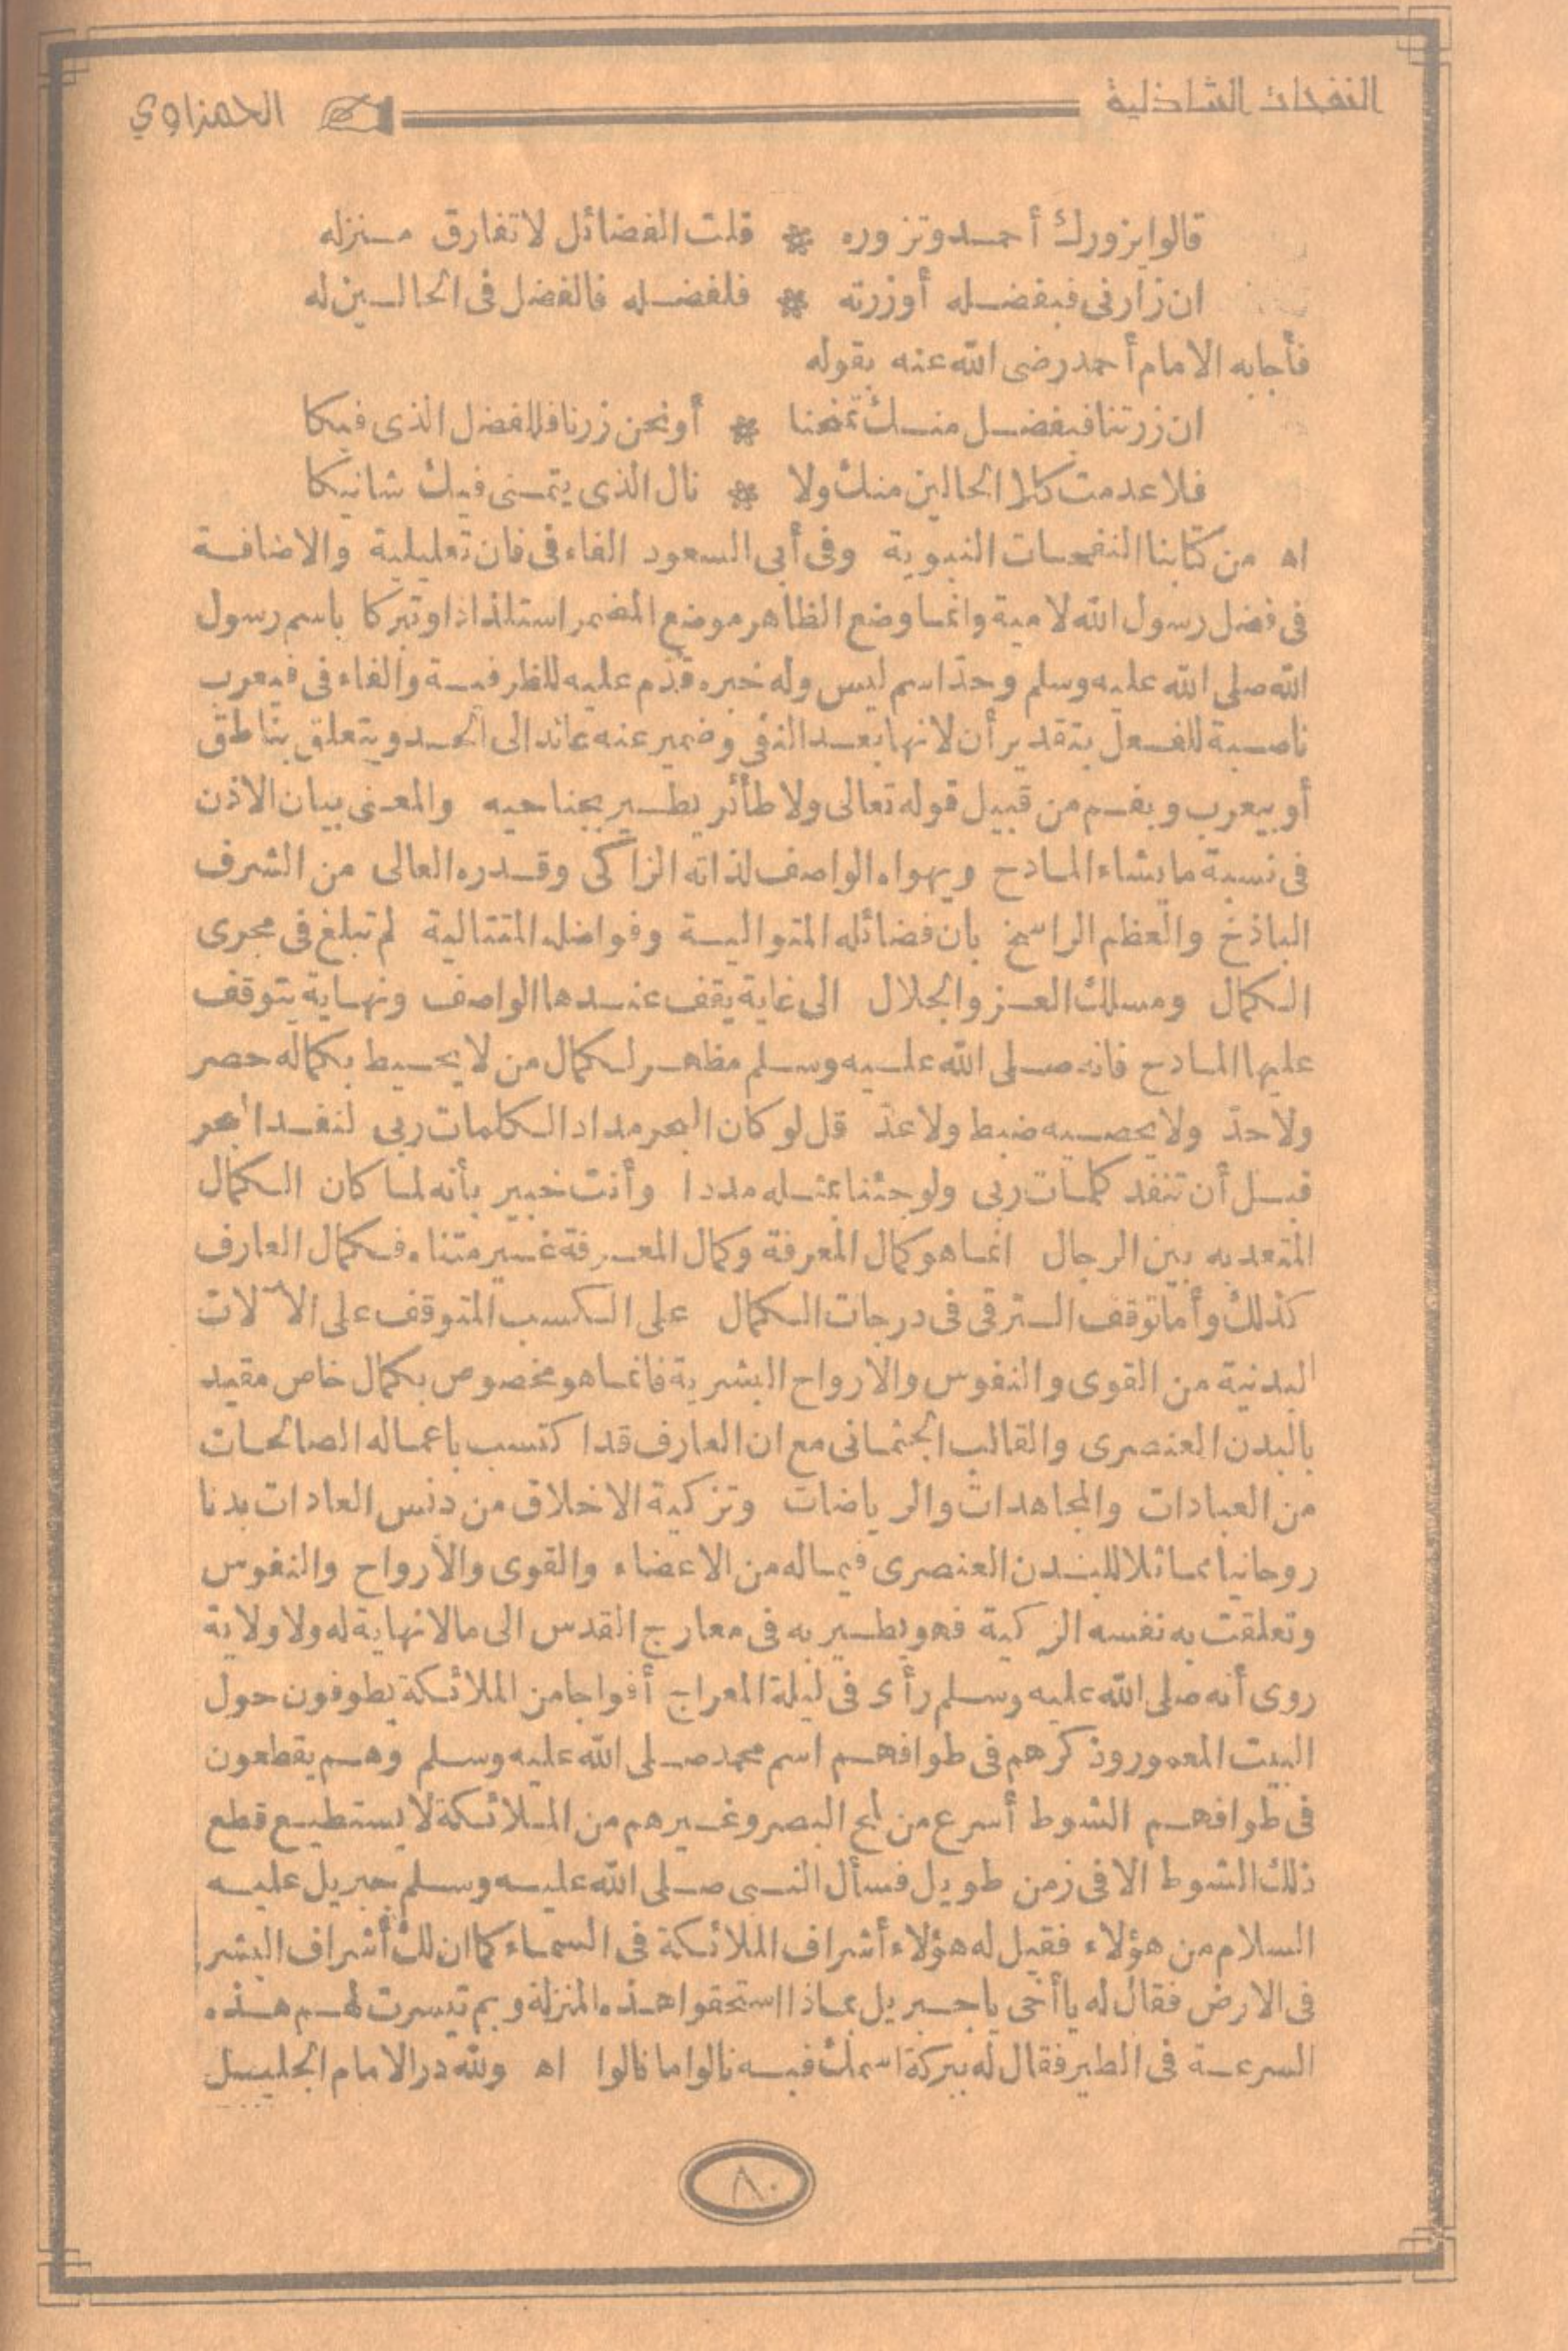 النفحات الشاذلية الحمزاوي
قالوا يزورك أحمد وتزوره * قلت الفضائل لا تفارق منزله
ان زارنى فبفضله أوزرته * فلفضله فالفضل فى الحالين له
فأجابه الامام أحمد رضى الله عنه بقوله
ان زرتنا فبفضل منك تمنحنا * أونحن زرنا فللفضل الذى فيكا
فلا عدمت كلا الحالين منك ولا * نال الذى يتمنى فيك شانيكا
اه من كتابنا النفحات النبوية وفى أبى السعود الفاء فى فان تعليلية والاضافة
فى فضل رسول الله لامية وانما وضع الظاهر موضع المضمر استلذاذا وتبركا باسم رسول
الله صلى الله عليه وسلم وحد اسم ليس وله خبره قدم عليه للظرفية والفاء فى فيعرب
ناصبة للفعل بتقدير أن لانها بعد النفى وضمير عنه عائد الى الحد ويتعلق بناطق
أو بيعرب وبفم من قبيل قوله تعالى ولا طائر يطير بجناحيه والمعنى بيان الاذن
فى نسبة ما يشاء المادح ويهواه الواصف لذاته الزاكى وقدره العالى من الشرف
الباذخ والعظم الراسخ بان فضائله المتوالية وفواضله المتتالية لم تبلغ فى مجرى
الكمال ومسلك العز والجلال الى غاية يقف عندها الواصف ونهاية يتوقف
عليها المادح فانه صلى الله عليه وسلم مظهر لكمال من لا يحيط بكماله حصر
ولا حد ولا يحصيه ضبط ولا عد قل لو كان البحر مدادا لكلمات ربى لنفد البحر
قبل أن تنفد كلمات ربى ولو جئنا بمثله مددا وأنت خبير بأنه لما كان الكمال
المتعد به بين الرجال انما هو كمال المعرفة وكمال المعرفة غير متناه فكمال العارف
كذلك وأما توقف الترقى فى درجات الكمال على الكسب المتوقف على الآلات
البدنية من القوى والنفوس والارواح البشرية فانما هو مخصوص بكمال خاص مقيد
بالبدن العنصرى والقالب الجثمانى مع ان العارف قد اكتسب باعماله الصالحات
من العبادات والمجاهدات والرياضات وتزكية الاخلاق من دنس العادات بدنا
روحانيا مماثلا للبدن العنصرى فيما له من الاعضاء والقوى والأرواح والنفوس
وتعلقت به نفسه الزكية فهو يطير به فى معارج القدس الى مالا نهاية له ولا ولاية
روى أنه صلى الله عليه وسلم رأى فى ليلة المعراج أفواجا من الملائكة يطوفون حول
البيت المعمور وذكرهم فى طوافهم اسم محمد صلى الله عليه وسلم وهم يقطعون
فى طوافهم الشوط أسرع من لمح البصر وغيرهم من الملائكة لا يستطيع قطع
ذلك الشوط الا فى زمن طويل فسأل النبى صلى الله عليه وسلم جبريل عليه
السلام من هؤلاء فقيل له هؤلاء أشراف الملائكة فى السماء كما ان لك أشراف البشر
فى الارض فقال له يا أخى يا جبريل بماذا استحقوا هذه المنزلة وبم تيسرت لهم هذه
السرعة فى الطير فقال له ببركة اسمك فيه نالوا ما نالوا اه ولله در الامام الجليل
٨٠